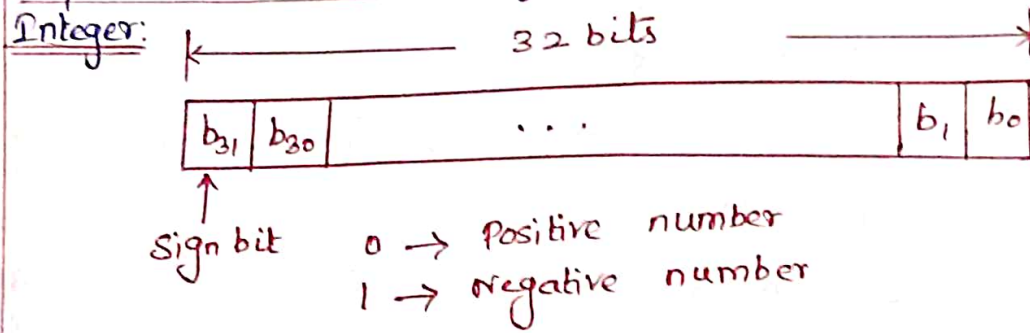 Integer:
32 bits
b₃₁ b₃₀ ... b₁ b₀
Sign bit 0 → Positive number
1 → Negative number